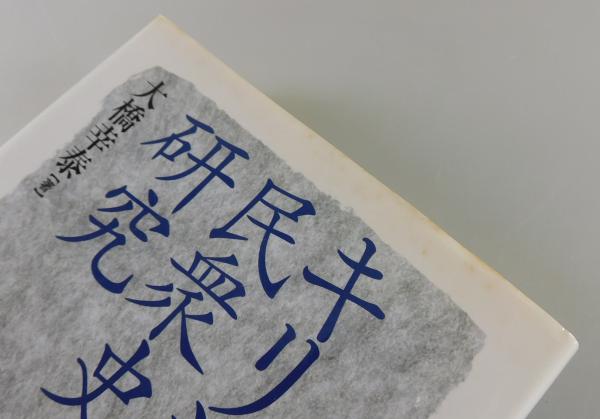 キリ
民衆史
研究
大橋幸泰[著]